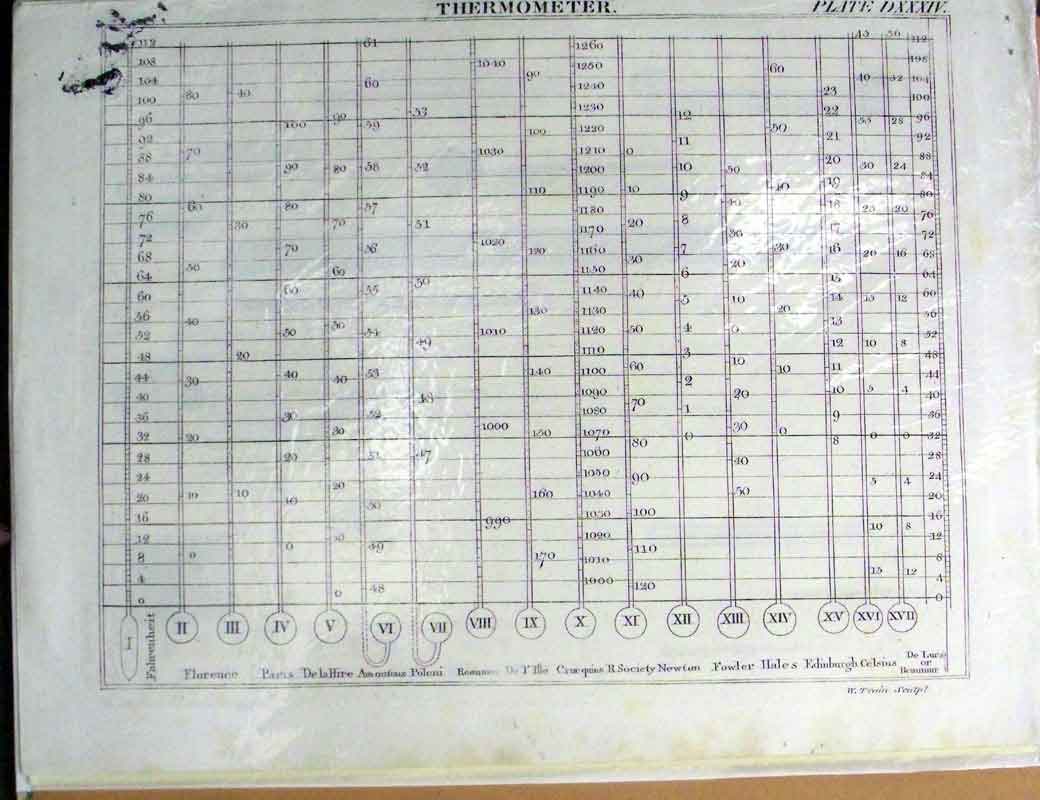 THERMOMETER.
PLATE DXXXIV.
112 108 104 100 96 92 88 84 80 76 72 68 64 60 56 52 48 44 40 36 32 28 24 20 16 12 8 4 0
80 70 60 50 40 30 20 10 0
40 30 20 10
100 90 80 70 60 50 40 30 20 10 0
90 80 70 60 50 40 30 20 10 0
61 60 59 58 57 56 55 54 53 52 51 50 49 48
53 52 51 50 49 48 47
1040 1030 1020 1010 1000 990
90 100 110 120 130 140 150 160 170
1260 1250 1240 1230 1220 1210 1200 1190 1180 1170 1160 1150 1140 1130 1120 1110 1100 1090 1080 1070 1060 1050 1040 1030 1020 1010 1000
0 10 20 30 40 50 60 70 80 90 100 110 120
12 11 10 9 8 7 6 5 4 3 2 1 0
50 40 30 20 10 0 10 20 30 40 50
60 50 40 30 20 10 0
23 22 21 20 19 18 17 16 15 14 13 12 11 10 9 8
45 40 35 30 25 20 15 10 5 0 5 10 15
36 32 28 24 20 16 12 8 4 0 4 8 12
112 108 104 100 96 92 88 84 80 76 72 68 64 60 56 52 48 44 40 36 32 28 24 20 16 12 8 4 0
I II III IV V VI VII VIII IX X XI XII XIII XIV XV XVI XVII
Fahrenheit
Florence Paris De la Hire Amontons Poleni Reaumur De l'Isle Crucquius R. Society Newton Fowler Hales Edinburgh Celsius De Luc's or Reaumur
W. Sculpt.